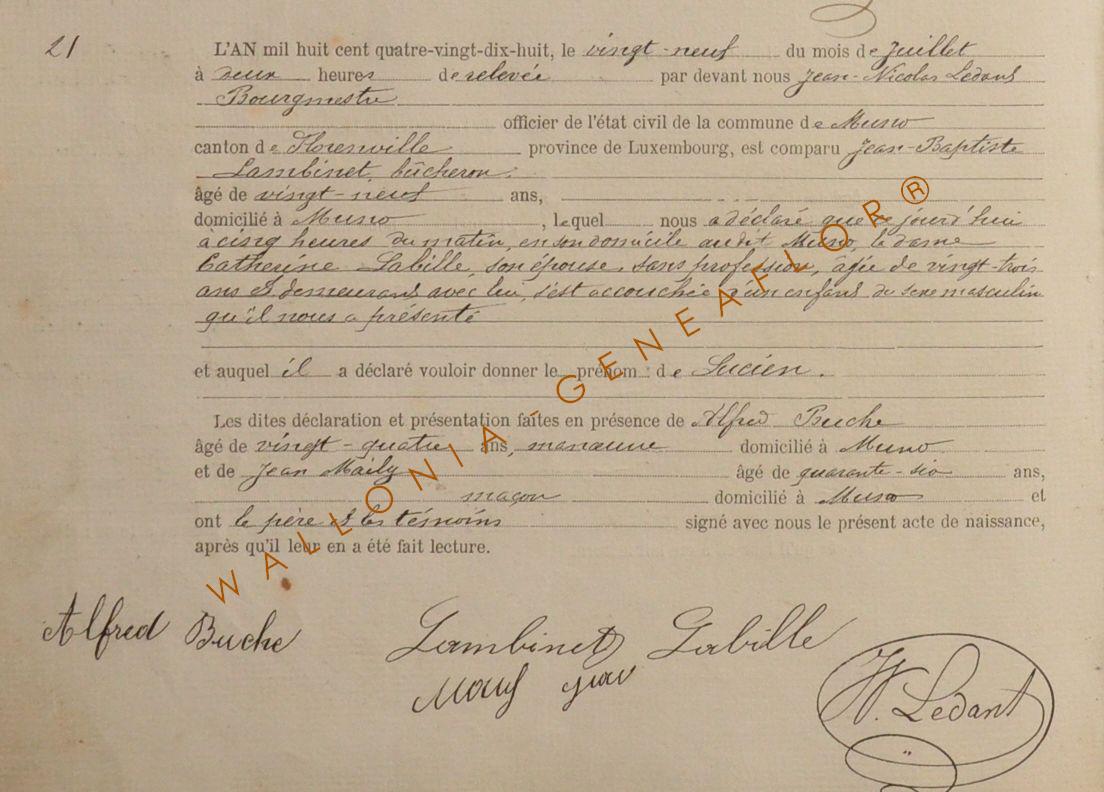 21
L'AN mil huit cent quatre-vingt-dix-huit, le vingt-neuf du mois de Juillet
à deux heures de relevée par devant nous Jean-Nicolas Ledant
Bourgmestre
officier de l'état civil de la commune de Muno
canton de Florenville province de Luxembourg, est comparu Jean-Baptiste
Lambinet, bûcheron,
âgé de vingt-neuf ans,
domicilié à Muno, lequel nous a déclaré que ce jourd'hui
à cinq heures du matin, en son domicile audit Muno, la dame
Catherine Labille, son épouse, sans profession, âgée de vingt-trois
ans et demeurant avec lui, s'est accouchée d'un enfant du sexe masculin
qu'il nous a présenté
et auquel il a déclaré vouloir donner le prénom : de Lucien.
Les dites déclaration et présentation faites en présence de Alfred Buche
âgé de vingt-quatre ans, domicilié à Muno
et de Jean Maily âgé de quarante-six ans,
maçon domicilié à Muno et
ont le père et les témoins signé avec nous le présent acte de naissance,
après qu'il leur en a été fait lecture.
WALLONIA-GENEAFLOR®
Alfred Buche Lambinet Labille
N. Ledant